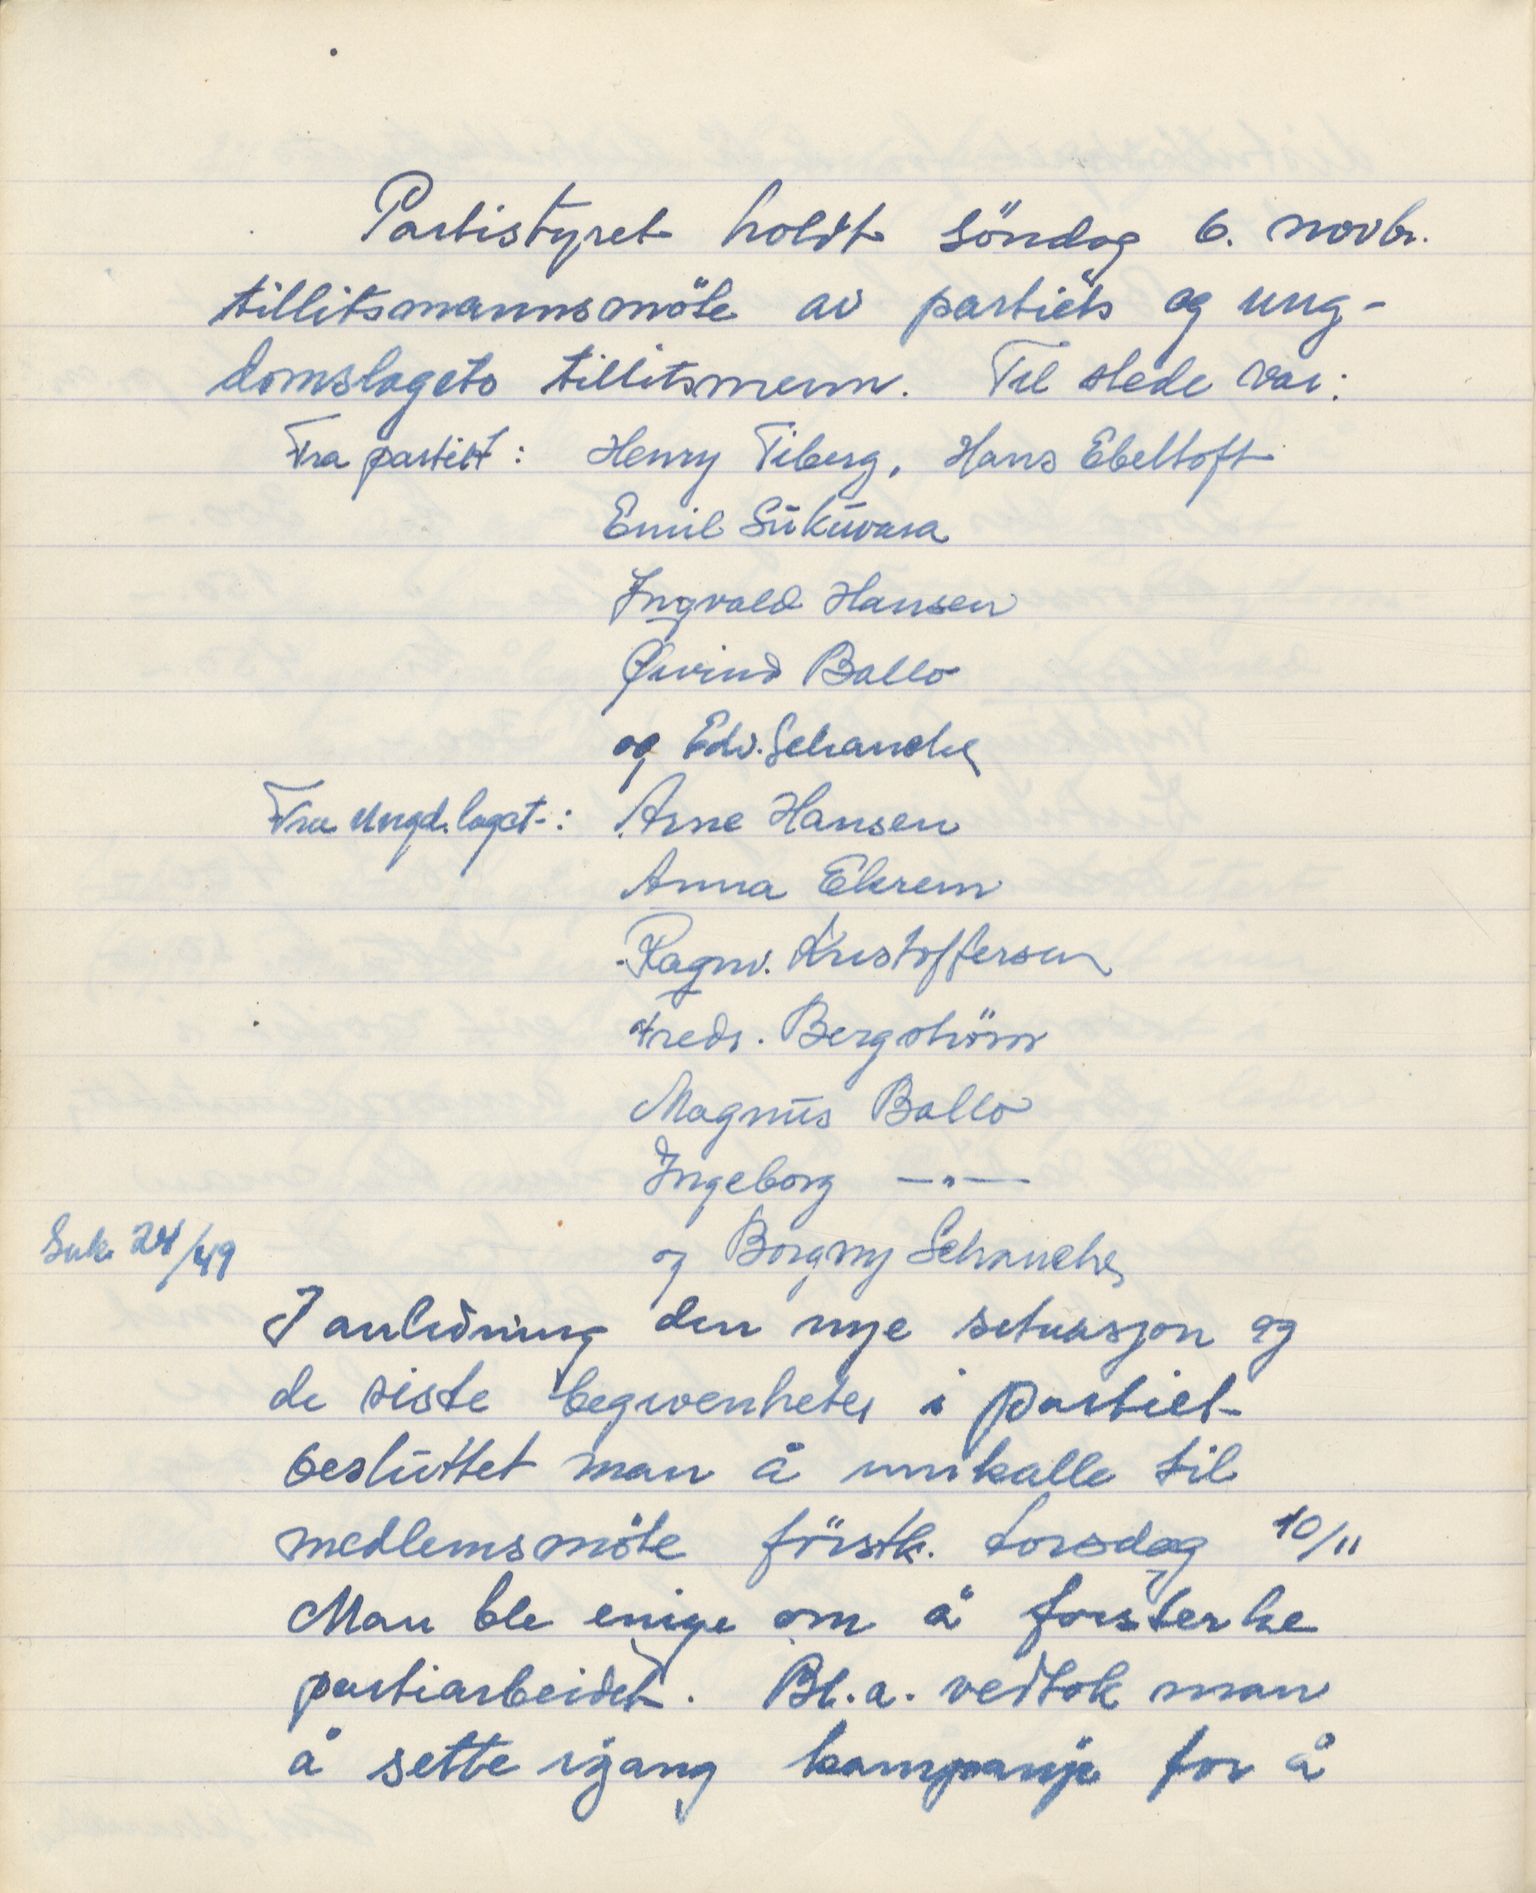 Partistyret holdt söndag 6. novbr.
tillitsmannsmöte av partiets og ung-
domslagets tillitsmenn. Til stede var:
Fra partiet: Henry Tiberg, Hans Ebeltoft
Emil Sukuvara
Ingvald Hansen
Øivind Ballo
og Edv. Schanche
Fra ungd.laget: Arne Hansen
Anna Ekrem
Ragnv. Kristoffersen
Fredr. Bergström
Magnus Ballo
Ingeborg —"—
og Borgny Schanche
Sak 24/49
I anledning den nye situasjon og
de siste begivenheter i partiet
besluttet man å innkalle til
medlemsmöte förstk. torsdag 10/11
Man ble enige om å forsterke
partiarbeidet. Bl.a. vedtok man
å sette igang kampanje for å